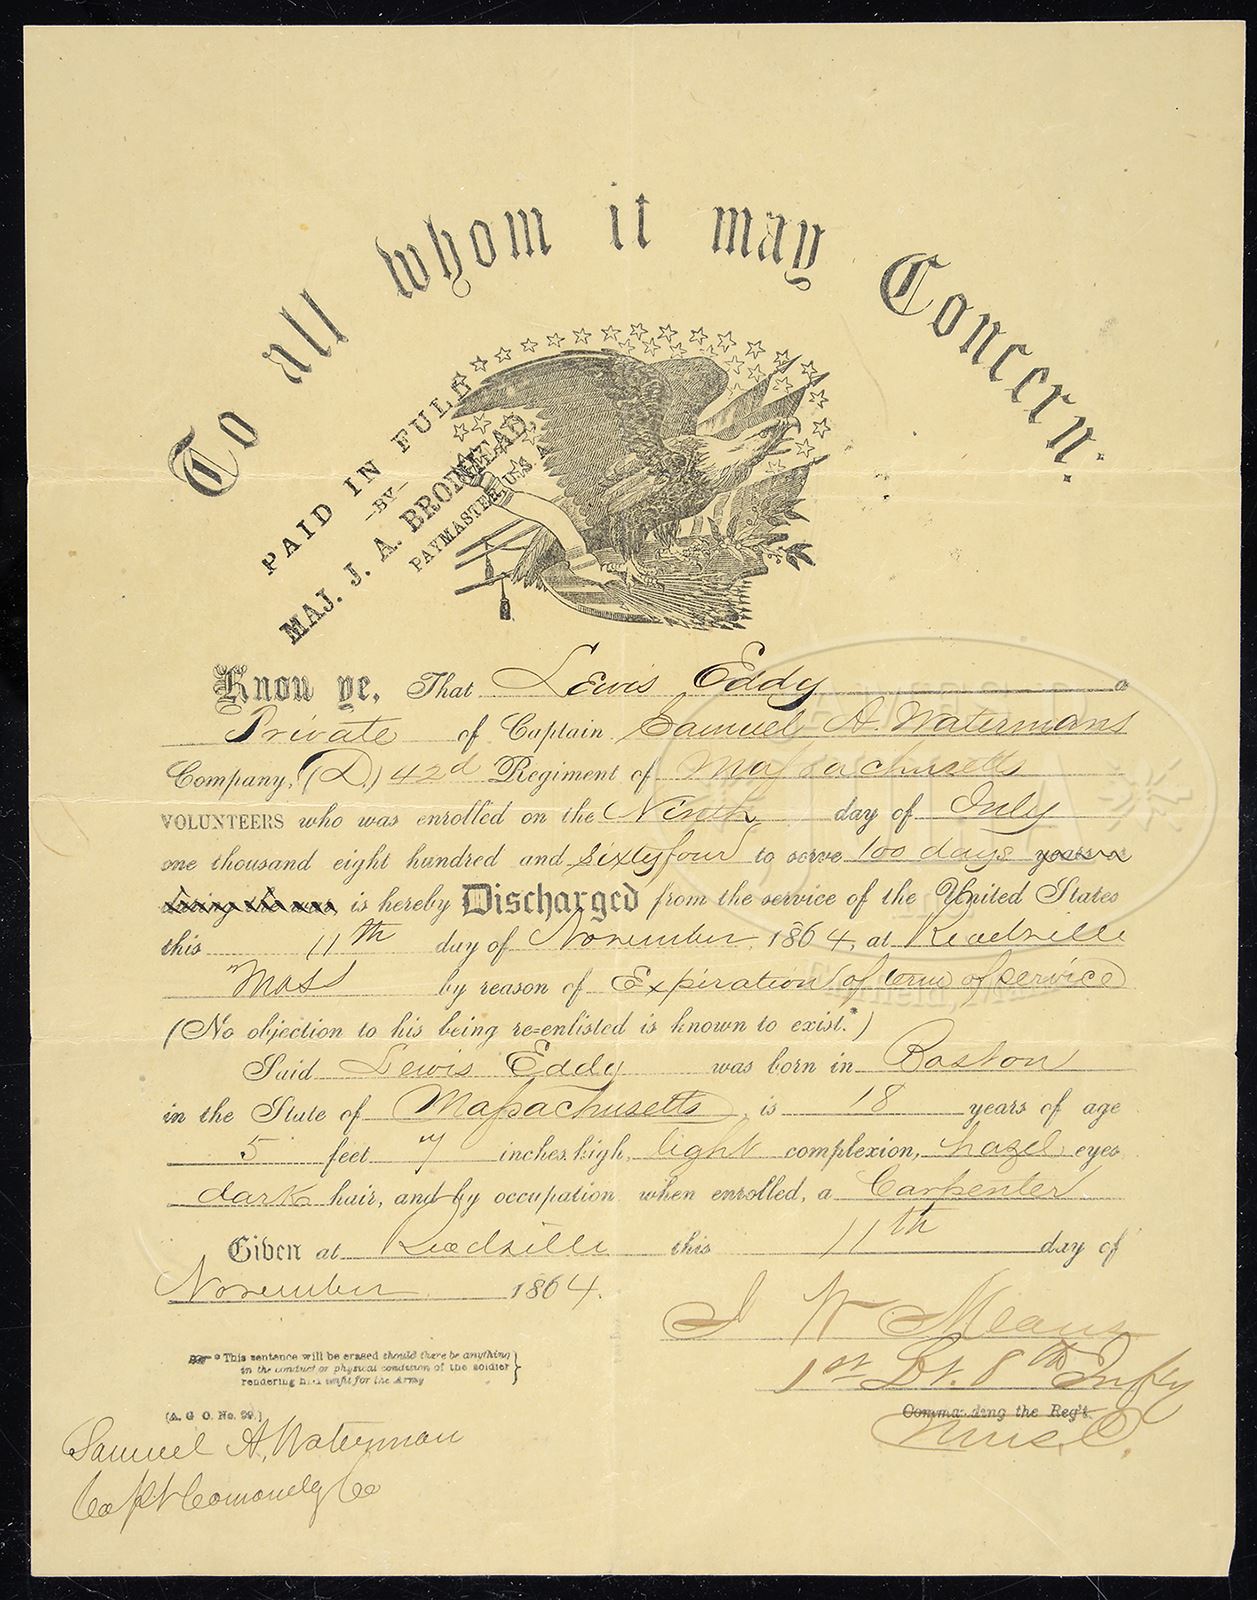 To all whom it may Concern:
PAID IN FULL
-BY-
MAJ. J. A.
PAYMASTER, U.S.A.
Know ye, That Lewis Eddy a
Private of Captain Samuel A. Watermans
Company, (D,) 42d Regiment of Massachusetts
VOLUNTEERS who was enrolled on the Ninth day of July
one thousand eight hundred and Sixtyfour to serve 100 days years or
during the war, is hereby Discharged from the service of the United States
this 11th day of November, 1864, at Readville
Mass by reason of Expiration of term of service
(No objection to his being re-enlisted is known to exist.*)
Said Lewis Eddy was born in Boston
in the State of Massachusetts, is 18 years of age
5 feet 7 inches high, light complexion, hazel eyes
dark hair, and by occupation, when enrolled, a Carpenter
Given at Readville this 11th day of
November 1864.
J W Means
1st Lt. 8th Infy
Commanding the Reg't.
Mus. O.
* This sentence will be erased should there be anything
in the conduct or physical condition of the soldier
rendering him unfit for the Army
(A. G. O. No. 99.)
Samuel A, Waterman
Capt Comondg Co
JAMES D
JULIA
Fairfield, Maine